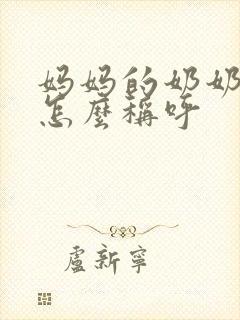 妈妈的奶奶
怎麼稱呼
盧新寧